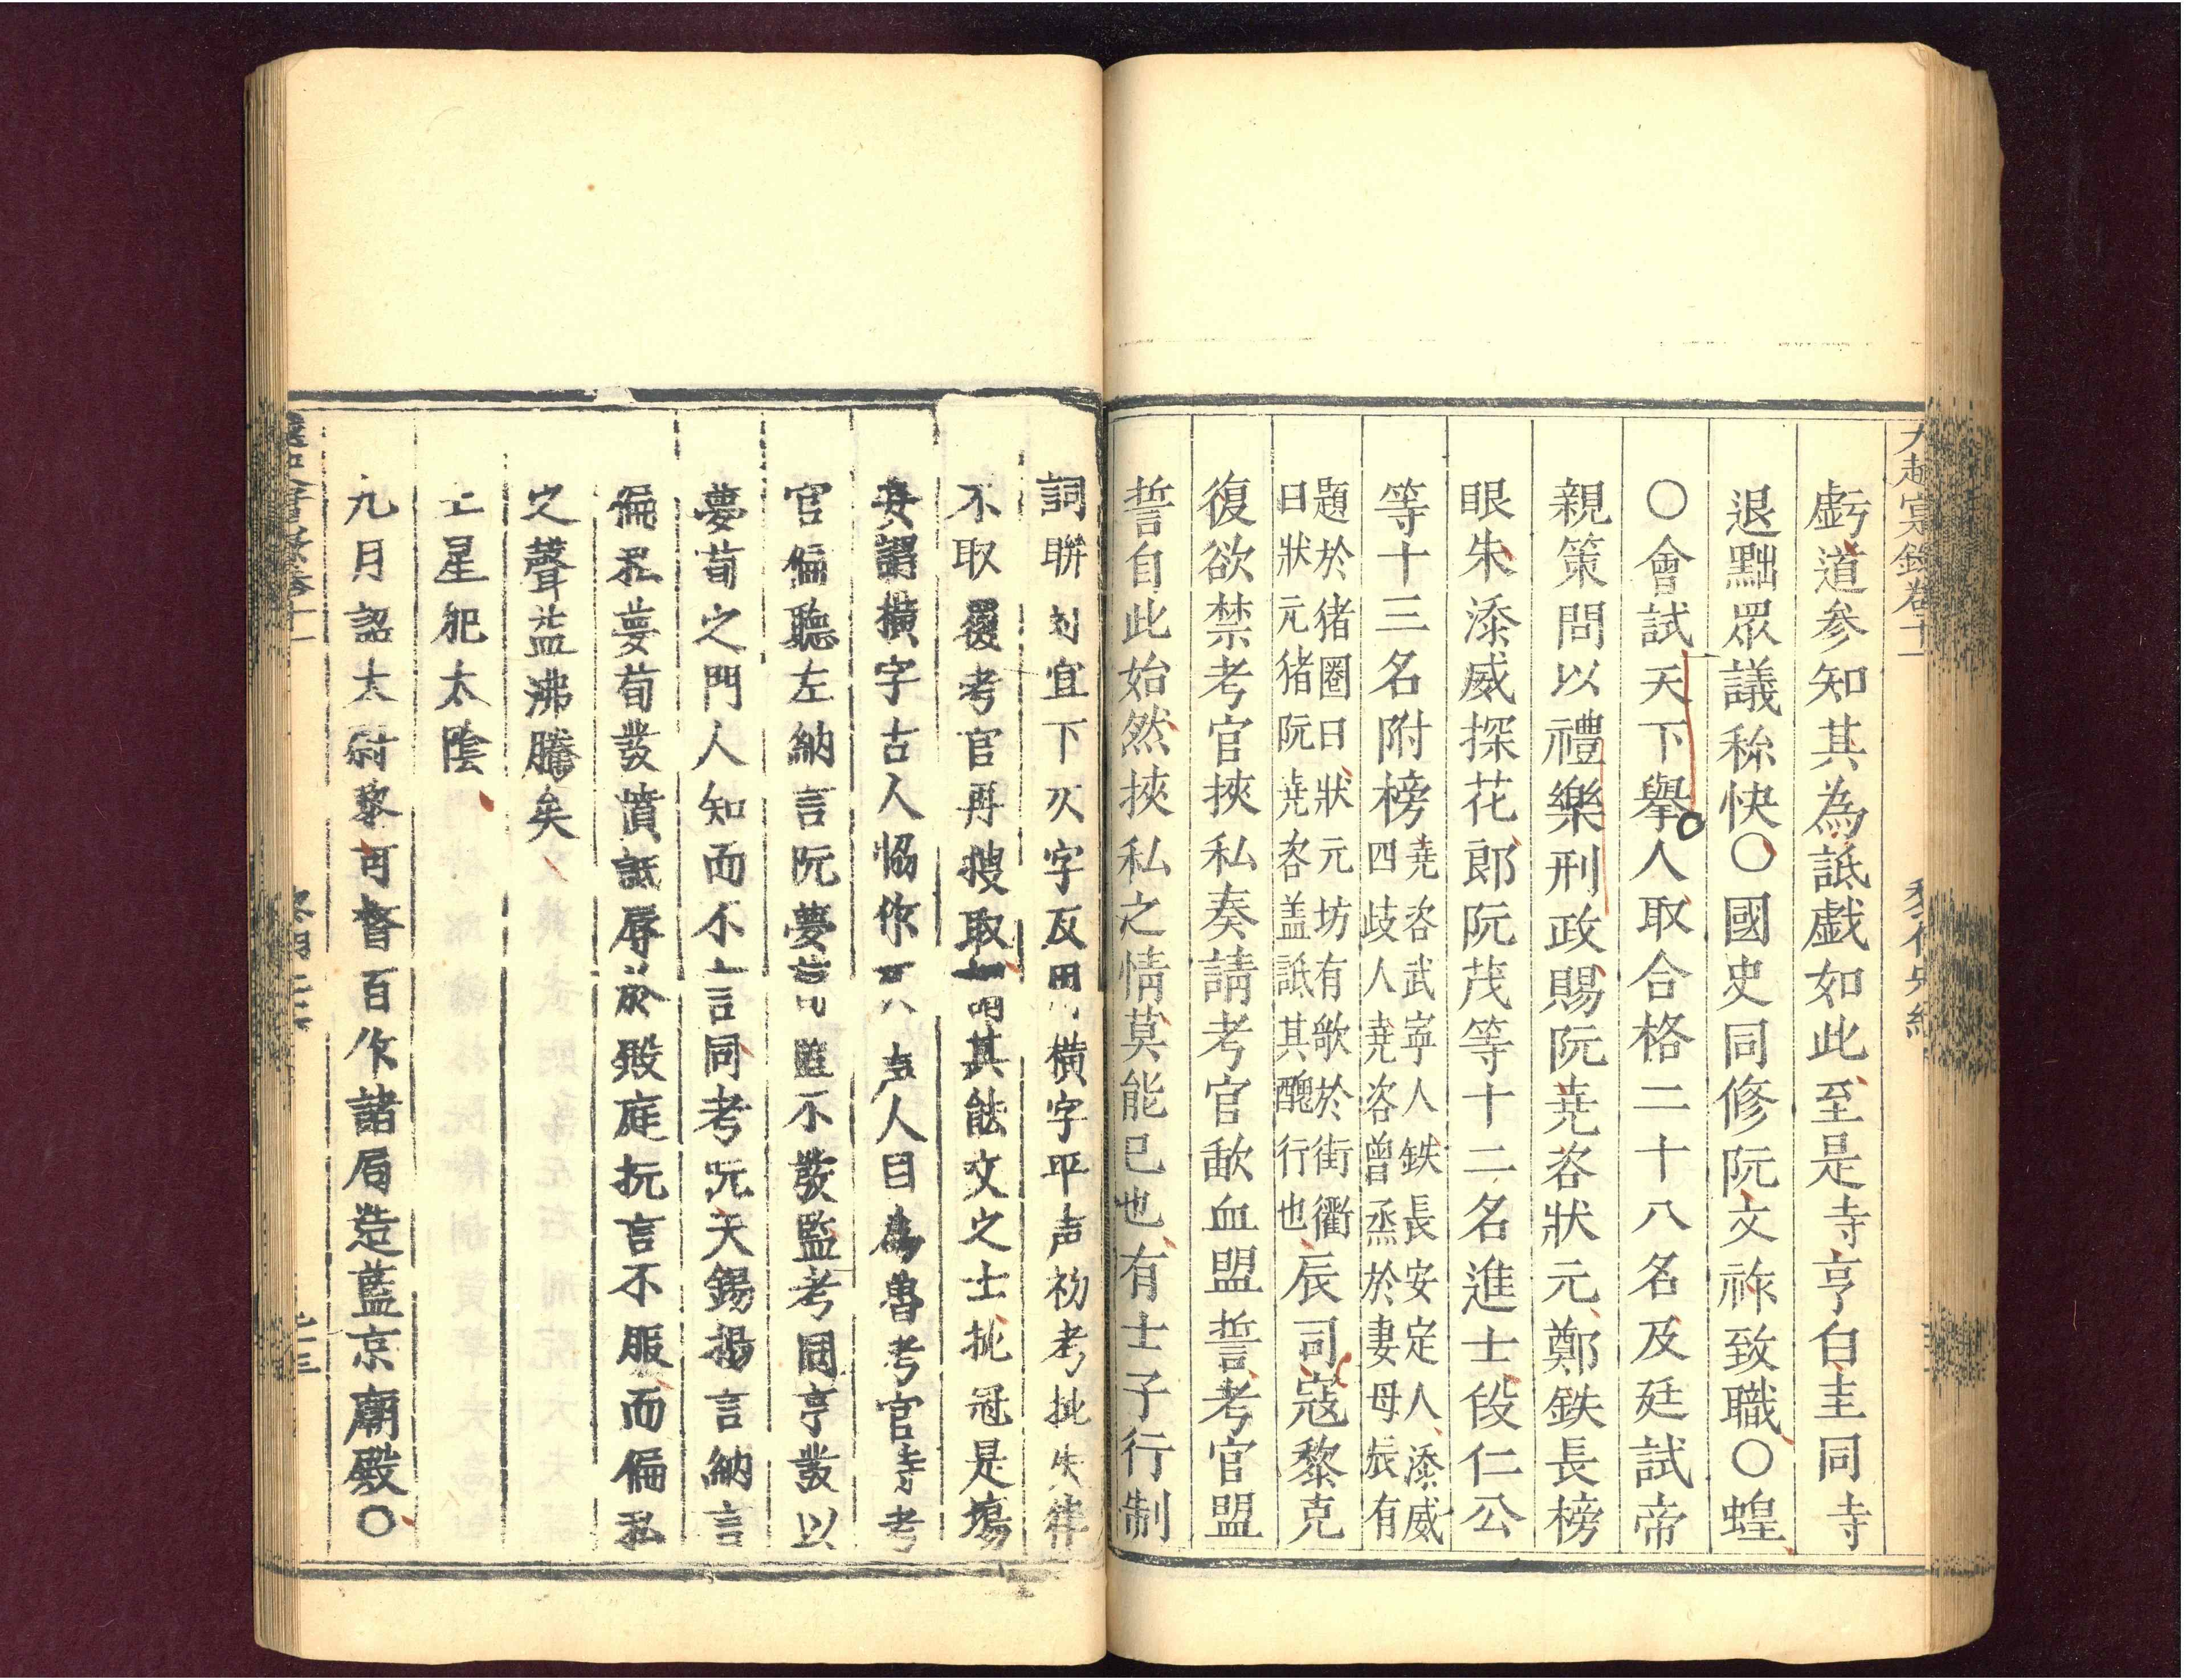 大越寔錄卷十一
虧道参知其為詆戯如此至是寺亨白圭同寺
退黜眾議稱快〇國史同修阮文祚致職〇蝗
〇會試天下擧人取合格二十八名及廷試帝
親策問以禮樂刑政賜阮尭咨狀元鄭鉄長榜
眼朱添威探花郎阮茂等十二名進士段仁公
等十三名附榜
尭咨武寧人鉄長安定人添威
四歧人尭咨曾烝於妻母辰有
題於猪圈曰狀元坊有歌於街衢
曰狀元猪阮尭咨盖詆其醜行也
辰司寇黎克
復欲禁考官挾私奏請考官歃血盟誓考官盟
誓自此始然挾私之情莫能已也有士子行制
詞聨对宜下仄字反用橫字平声初考批失律
不取覆考官再搜取明其能文之士批冠是塲
妄謂橫字古人恊作声人目為魯考官寺考
官偏聽左納言阮夢荀雖不發監考同亨發以
夢荀之門人知而不言同考阮天錫揚言納言
偏私夢荀發憤詆辱於殿庭抗言不服而偏私
之聲益沸騰矣
土星犯太陰
九月詔太尉黎可督百作諸局造藍京廟殿〇